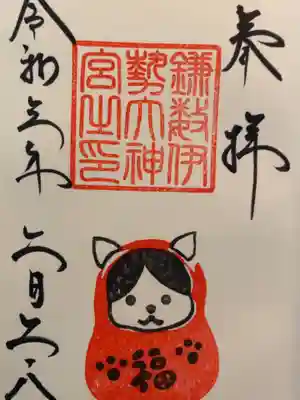 奉拝
鎌數伊
勢大神
宮之印
令和年
月八
福